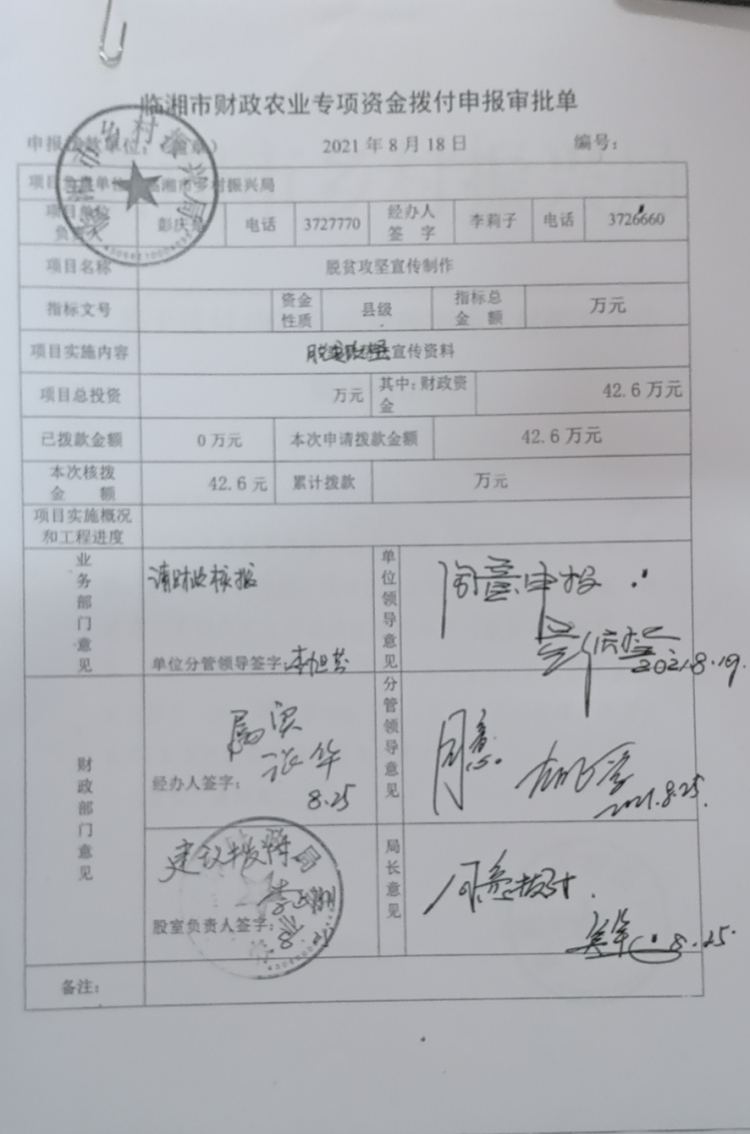 临湘市财政农业专项资金拨付申报审批单
申报拨款单位：（盖章） 2021年8月18日 编号：
项目负责单位 临湘市乡村振兴局
项目单位负责人 彭庆 电话 3727770 经办人签 字 李莉子 电话 3726660
项目名称 脱贫攻坚宣传制作
指标文号 资金性质 县级 指标总金 额 万元
项目实施内容 宣传资料
项目总投资 万元 其中：财政资金 42.6万元
已拨款金额 0万元 本次申请拨款金额 42.6万元
本次核拨金 额 42.6元 累计拨款 万元
项目实施概况和工程进度
业务部门意见 请财政核拨 单位分管领导签字： 单位领导意见 同意申报 2021.8.19
财政部门意见 属实 张华 经办人签字： 8.25 分管领导意见 同意 2021.8.25.
建议拨付 股室负责人签字： 局长意见 同意拨付. 8.25.
备注：